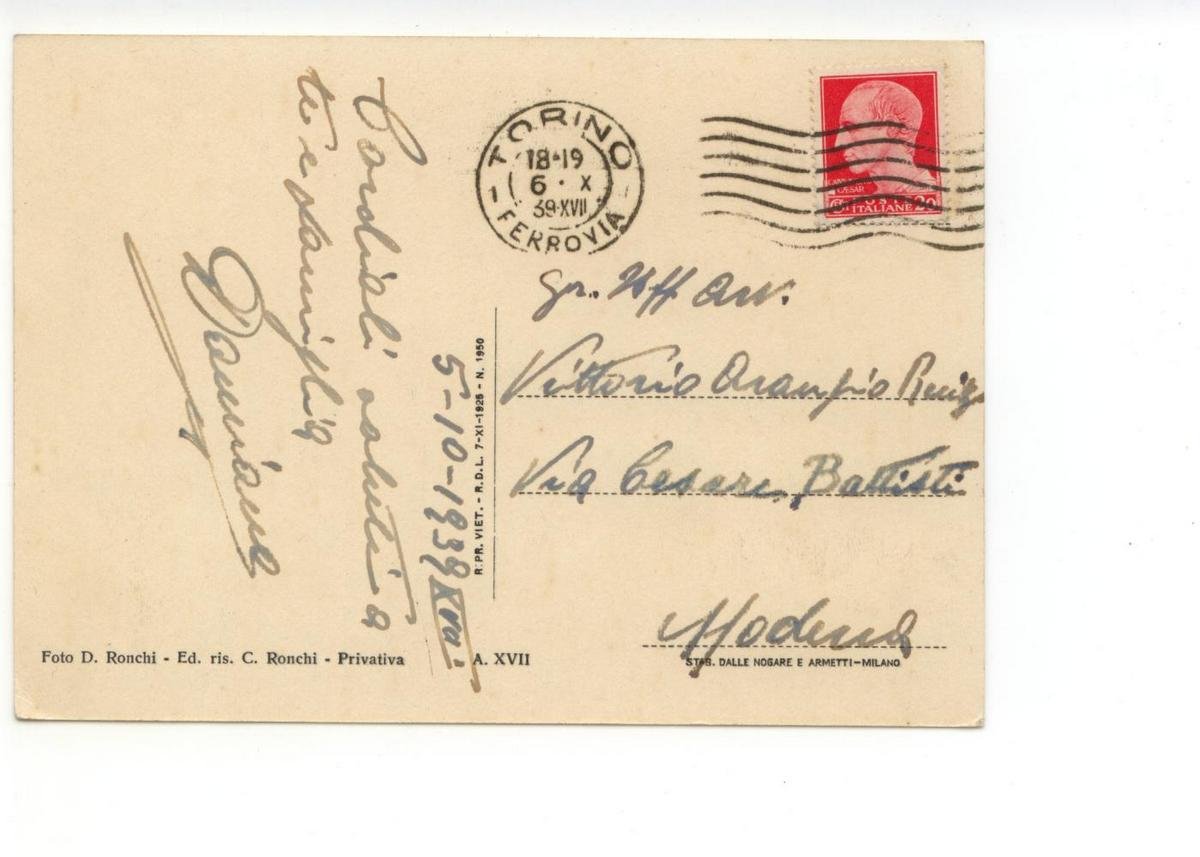 Cordiali saluti a
te e famiglia
Damiano
5-10-1939 XVII
TORINO
18-19
6 · X
39·XVII
- FERROVIA -
CAESAR
POSTE
ITALIANE 20
Gr. Uff Avv.
Vittorio Arangio Ruiz
Via Cesare Battisti
Modena
R. PR. VIET. - R.D.L. 7-XI-1925 - N. 1950
Foto D. Ronchi - Ed. ris. C. Ronchi - Privativa A. XVII
STAB. DALLE NOGARE E ARMETTI-MILANO